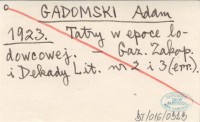 GADOMSKI Adam
1923. Tatry w epoce lo-
dowcowej. - Gaz. Zakop.
i Dekady Lit. nr 2 i 3 (err.).